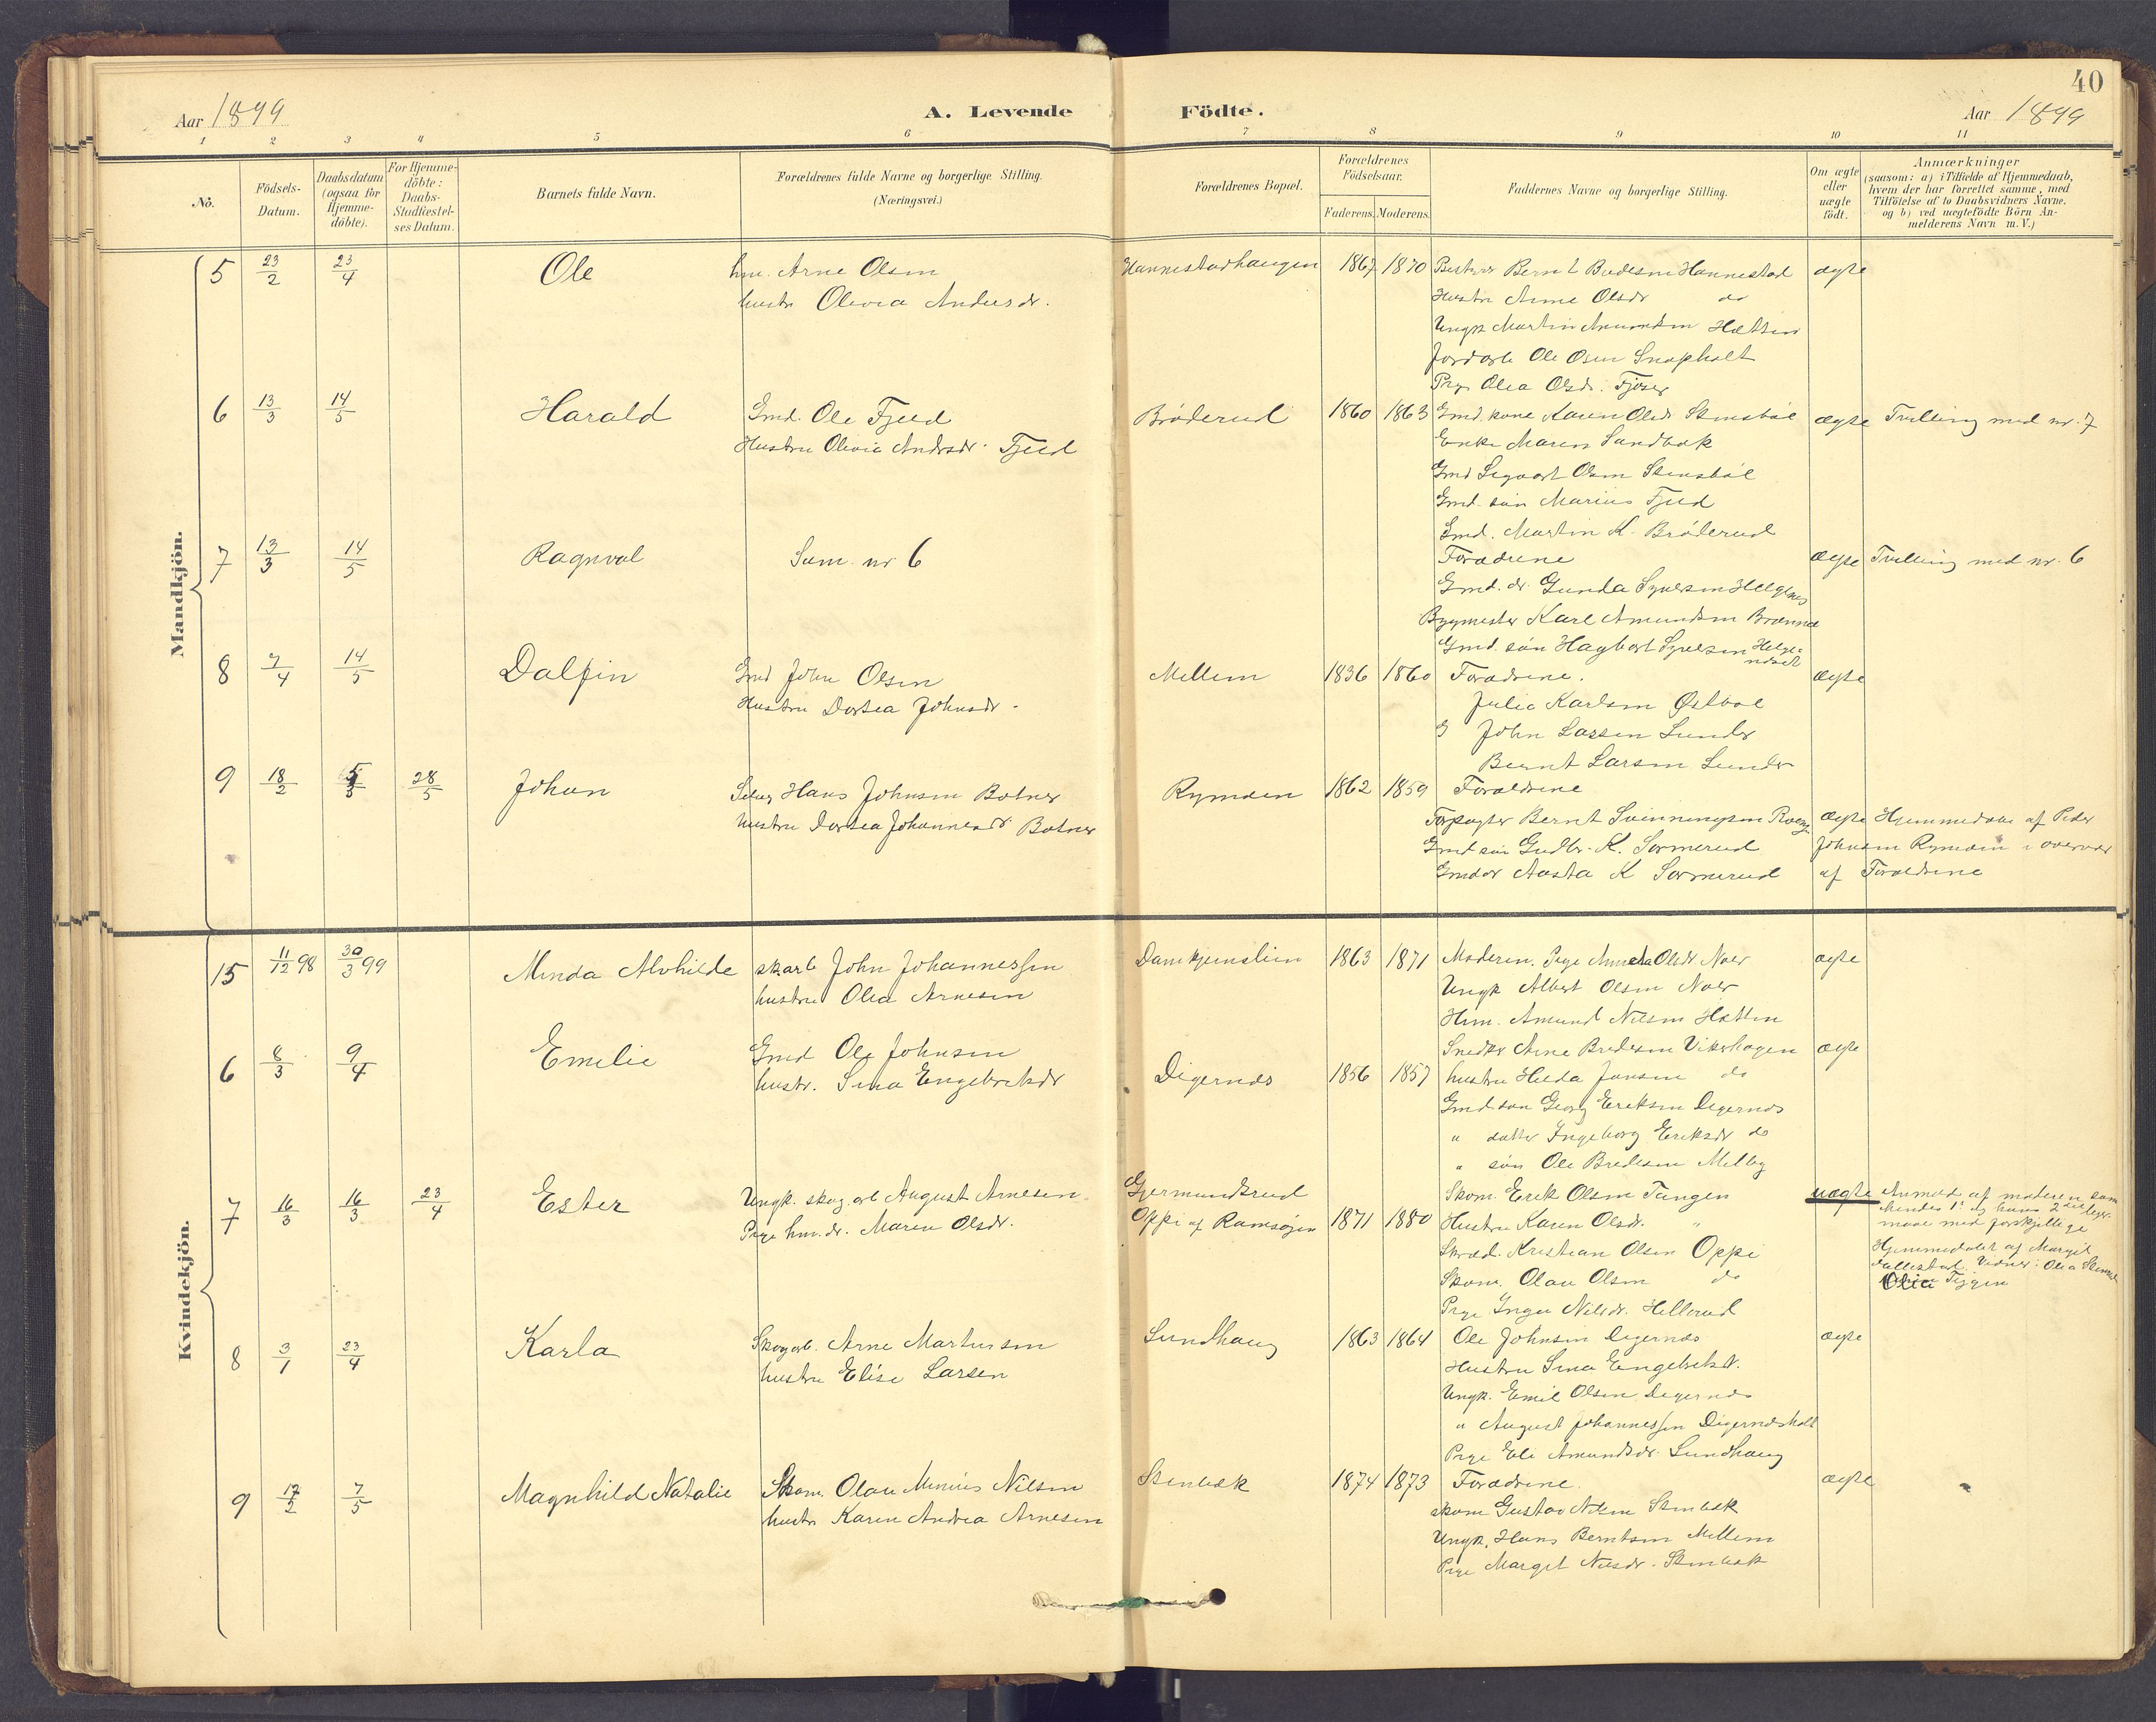 40
Aar 1899
A. Levende Födte.
Aar 1899
1 2 3 4 5 6 7 8 9 10 11
No.
Födsels-Datum.
Daabsdatum (ogsaa for Hjemme-döbte).
For Hjemme-döbte: Daabs-Stadfæstel-ses Datum.
Barnets fulde Navn.
Forældrenes fulde Navne og borgerlige Stilling.
(Næringsvei.)
Forældrenes Bopæl.
Forældrenes Födselsaar.
Faderens. Moderens.
Faddernes Navne og borgerlige Stilling.
Om ægte eller uægte födt.
Anmærkninger
(saasom: a) i Tilfælde af Hjemmedaab,
hvem der har forrettet samme, med
Tilföielse af to Daabsvidners Navne,
og b) ved uægtefödte Börn An-
melderens Navn m. V.)
Mandkjön.
5 23/2 23/4 Ole
hm. Arne Olsen
hustr Olivia Andersdr.
Hannestadhaugen 1867 1870
Bestyrer Bernt Bredesen Hannestad
Hustru Anne Olsdr do
Ungk Martin Amundsen Hætten
Jordarb Ole Osen Snapholt
Pige Olea Olsdr. Fjøser
ægte
6 13/3 14/5 Harald
Gmd. Ole Fjeld
Hustru Olivia Andrsdr. Fjeld
Bröderud 1860 1863
Gmd. kone Karen Olsdr Stensböl
Enke Maren Sandbæk
Gmd Sigvart Olsen Stensböl
Gmd. sön Marius Fjeld
Gmd. Martin K. Bröderud
ægte Tvilling med nr. 7
7 13/3 14/5 Ragnval
Sam. nr 6
Forældrene
Gmd. dr. Gunda Syversen Helgenes
Bygmester Karl Amundsen Brænna
Gmd. sön Hagbart Syversen
ægte Tvilling med nr. 6
8 7/4 14/5 Dalfin
Gmd John Olsen
Hustru Dortea Johnsdr.
Mellem 1836 1860
Forældrene.
Julie Karlsen Østbøl
G John Larsen Lunder
Bernt Larsen Lunder
ægte
9 18/2 5/3 28/5 Johan
Selvej Hans Johnsen Botner
hustru Dortea Johannesdr Botner
Rymoen 1862 1859
Forældrene
Forpagter Bernt Svenningsen
Gmd sön Gudbr. K. Sormerud
Gmd dr Aasta K Sormerud
ægte Hjemmedøbt af Peder
Johnsen Rymoen i overvær
af Forældrene
Kvindekjön.
15 11/12 98 30/3 99 Minda Alvhilde
skarb John Johannessen
hustru Olea Arnesen
Damkjernslien 1863 1871
Moderen. Pige Anneta Olsdr Noer
Ungk Albert Olsen Noer
Hm. Amund Nilsen Hætten
ægte
6 8/3 9/4 Emelie
Gmd Ole Johnsen
hustr. Sina Engebretsdr
Digernes 1856 1857
Snedker Arne Bredesen Vikerhagen
hustru Hilda Jansen do
Gmd sön Georg Eriksen Digernes
" datter Ingeborg Eriksdr do
" sön Ole Bredesen Melby
ægte
7 16/3 16/3 23/4 Ester
Ungk. skog.arb August Arnesen
Pige hm.dr. Maren Olsdr.
Gjermundsrud
Oppi af Ramsøgen 1871 1880
Skom. Erik Olsen Tangen
Hustru Karen Olsdr. "
Skræd. Kristian Olsen Oppi
Skom. Olau Olsen do
Pige Inga Nilsdr. Hellerud
uægte
Anmeld af moderen som
hendes 1ste og hans 2det leger-
maal med forskjellige
Hjemmedøbt af Margit
Vidner: Olea
Olea
8 3/1 23/4 Karla
Skogarb. Arne Martinsen
hustru Elise Larsen
Sundhaug 1863 1864
Ole Johnsen Digernes
Hustru Sina Engebretsdr.
Ungk. Emil Olsen Digernes
" August Johannessen Digernesholt
Pige Eli Amundsdr. Sundhaug
ægte
9 17/2 7/5 Magnhild Natalie
Skom. Olau Minius Nilsen
hustr Karen Andrea Arnesen
Stenbæk 1874 1873
Forældrene.
skom Gustav Nilsen Stenbæk
Ungk. Hans Berntsen Mellem
Pige Margit Nilsdr. Stenbæk
ægte